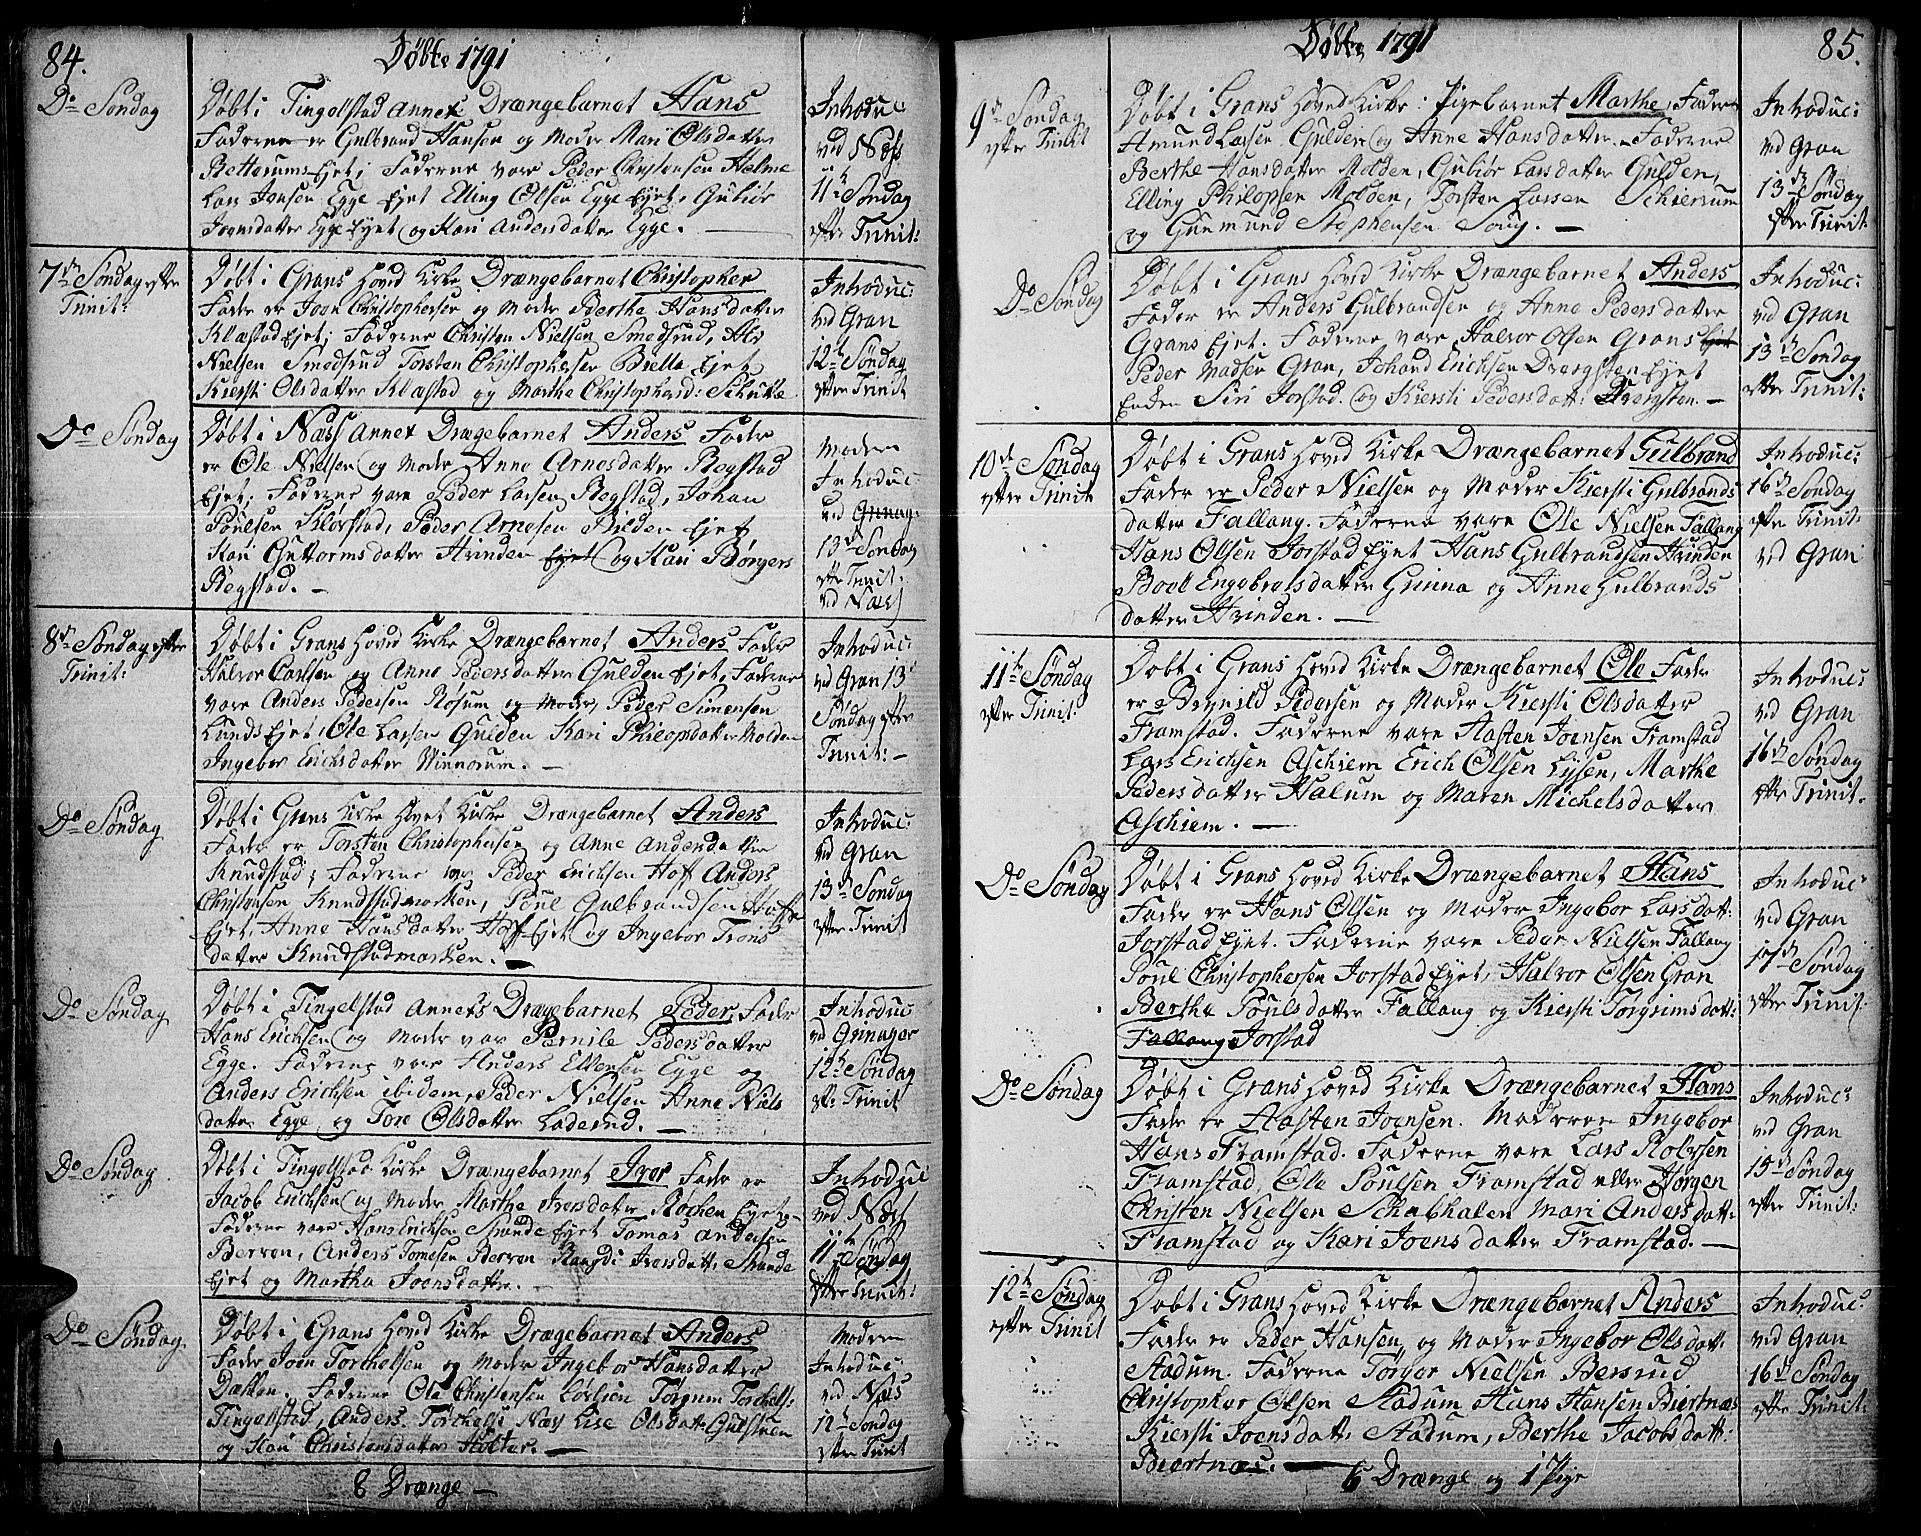 84.
Døbte 1791
Do Søndag
Døbt i Tingelstad Annex Drængebarnet Hans
Faderne er Gulbrand Hansen og Moder Mari Olsdatter
Ejet; Fadderne vare Peder Christensen Helme
Lars Jensen Egge Ejet Elling Olsen Egge Ejet, Guliør
Joensdatter Egge Ejet og Kari Andersdatter Egge. —
Introduc
ved Næss
11te Søndag
efter Trinit:
7de Søndag efter
Trinit:
Døbt i Grans Hoved Kirke Drængebarnet Christopher
Fader er Joen Christophersen og Moder Berthe Hansdatter
Klæstad Ejet; Fadderne Christen Nielsen Smedsrud, Ole
Nielsen Smedsrud Torsten Christophersen Bielle Ejet
Kiersti Olsdatter Klæstad og Marthe Christophersd: Schutte
Introduc:
ved Gran
12te Søndag
efter Trinit
Do Søndag
Døbt i Næss Annex Drængebarnet Anders Fader
er Ole Nielsen og Moder Anne Arnesdatter Regstad
Ejet; Fadderne vare Peder Larsen Regstad, Johan
Poulsen Kløvstad, Peder Arnesen Bilden Ejet,
Kari Guttormsdatter Hvinden Ejet og Kari Børgers
Regstad. —
Moderen
Introduc
ved Grinag:
13de Søndag
efter Trinit:
ved Næss
8de Søndag efter
Trinit:
Døbt i Grans Hoved Kirke Drængebarnet Anders Fader
Halvor Carlsen og Anne Pedersdatter Gulden Ejet, Fadderne
vare Anders Pedersen Røsum og Moder, Peder Simensen
Lunds Ejet, Ole Larsen Gulden Kari Philopsdatter Molden
Ingebor Erichsdatter Vinnorum. —
Introduc:
ved Gran 13de
Søndag efter
Trinit: —
Do Søndag
Døbt i Grans Kirke Hovet Kirke Drængebarnet Anders
Fader er Torsten Christophersen og Anne Andersdatter
Knudstad; Fadderne var Peder Erichsen Hoff Anders
Christensen Knudstadmarken, Poul Gulbrandsen Hoff
Ejet, Anne Hansdatter Hoff Ejet og Ingebor Trons
datter Knudstadmarken. —
Introduc:
ved Gran
13de Søndag
efter Trinit
Do Søndag
Døbt i Tingelstad Annex Drængebarnet Peder, Fader
Hans Erichsen og Moder var Pernile Pedersdatter
Egge. Fadderne vare Anders Ellensen Egge og
Anders Erichsen ibidem, Peder Nielsen Anne Niels
datter Egge, og Tore Olsdatter Laderud. —
Introduc
ved Grinager
12te Søndag
eft: Trinit
Do Søndag
Døbt i Tingelstad Kirke Drængebarnet Iver Fader er
Jacob Erichsen og Moder Marthe Iversdatter Røchen Ejet
Fadderne vare Hans Erichsen Strande Ejet Tomas Andersen
Berven, Anders Tomesen Berven Rangdi Iversdatt: Strande
Ejet og Martha Joensdatter. —
Introduc
ved Næss
11te Søndag
efter Trinit:
Do Søndag
Døbt i Grans Hoved Kirke Drægebarnet Anders
Fader Joen Torchelsen og Moder Ingebor Hansdatter
Dælken. Fadderne Ole Christensen Torchels:
Tingelstad, Anders Torchelss Næss Lise Olsdatt:
og Kari Christensdatter Holter. —
Moderen
Introduc:
ved Næs
12te Søndag
efter Trinit
8 Drænge —
Døbte 1791
85.
9de Søndag
efter Trinit
Døbt i Grans Hoved Kirke: Pigebarnet Marthe, Fader
Amund Larsen Gulden og Anne Hansdatter. Fadderne
Berthe Hansdatter Molden, Guliør Larsdatter Gulden,
Elling Philopsen Molden, Torsten Larsen Schierrum
og Gunmund Stephensen Soug. —
Introduc:
ved Gran
13de Søndag
efter Trinit:
Do Søndag
Døbt i Grans Hoved Kirke Drængebarnet Anders
Fader er Anders Gulbrandsen og Anne Pedersdatter
Grans Ejet. Fadderne vare Halvor Olsen Grans Ejet
Peder Madsen Gran, Johand Erichsen Dvergsten Ejet
Enken Siri Jorstad og Kiersti Pedersdatt: Dvergsten. —
Introduc:
ved Gran
13de Søndag
efter Trinit:
10de Søndag
efter Trinit
Døbt i Grans Hoved Kirke Drængebarnet Gulbrand
Fader er Peder Nielsen og Moder Kiersti Gulbrands
datter Fallang. Fadderne vare Ole Nielsen Fallang
Hans Olsen Jorstad Ejet Hans Gulbrandsen Hvinden
Boel Engebretsdatter Grinna og Anne Gulbrands
datter Hvinden. —
Introduc:
16de Søndag
efter Trinit:
ved Gran
11te Søndag
efter Trinit:
Døbt i Grans Hoved Kirke Drængebarnet Ole Fader
er Brynild Pedersen og Moder Kiersti Olsdatter
Framstad. Fadderne vare Hasten Joensen Framstad
Lars Erichsen Aschiem Erich Olsen Lysen, Marthe
Pedersdatter Halum og Maren Michelsdatter
Aschiem. —
Introduc:
ved Gran
16de Søndag
efter Trinit.
Do Søndag
Døbt i Grans Hoved Kirke Drængebarnet Hans
Fader er Hans Olsen og Moder Ingebor Larsdatt:
Jorstad Ejet. Fadderne vare Peder Nielsen Fallang
Poul Christophersen Jorstad Ejet, Halvor Olsen Gran
Berthe Poulsdatter Fallang og Kiersti Torgrimsdatt:
Fallang Jorstad
Introduc:
ved Gran
17de Søndag
efter Trinit:
Do Søndag
Døbt i Grans Hoved Kirke Drængebarnet Hans
Fader er Hasten Joensen. Moderen Ingebor
Hans Framstad. Fadderne vare Lars Rolvsen
Framstad, Ole Poulsen Framstad eller Horgen
Christen Nielsen Schabhalen Mari Andersdatt:
Framstad og Kari Joensdatter Framstad. —
Introduc:
ved Gran
15de Søndag
efter Trinit:
12te Søndag
efter Trinit
Døbt i Grans Hoved Kirke Drængebarnet Anders
Fader er Peder Hansen, og Moder Ingebor Olsdatt:
Stadum. Fadderne Torger Nielsen Bersrud
Christopher Olsen Stadum Hans Hansen Biertnæs
Kiersti Joensdatter Stadum, Berthe Jacobsdatt:
Biertnæs. —
Introduc:
ved Gran
16de Søndag
efter Trinit:
6 Drænge og 1 Pige